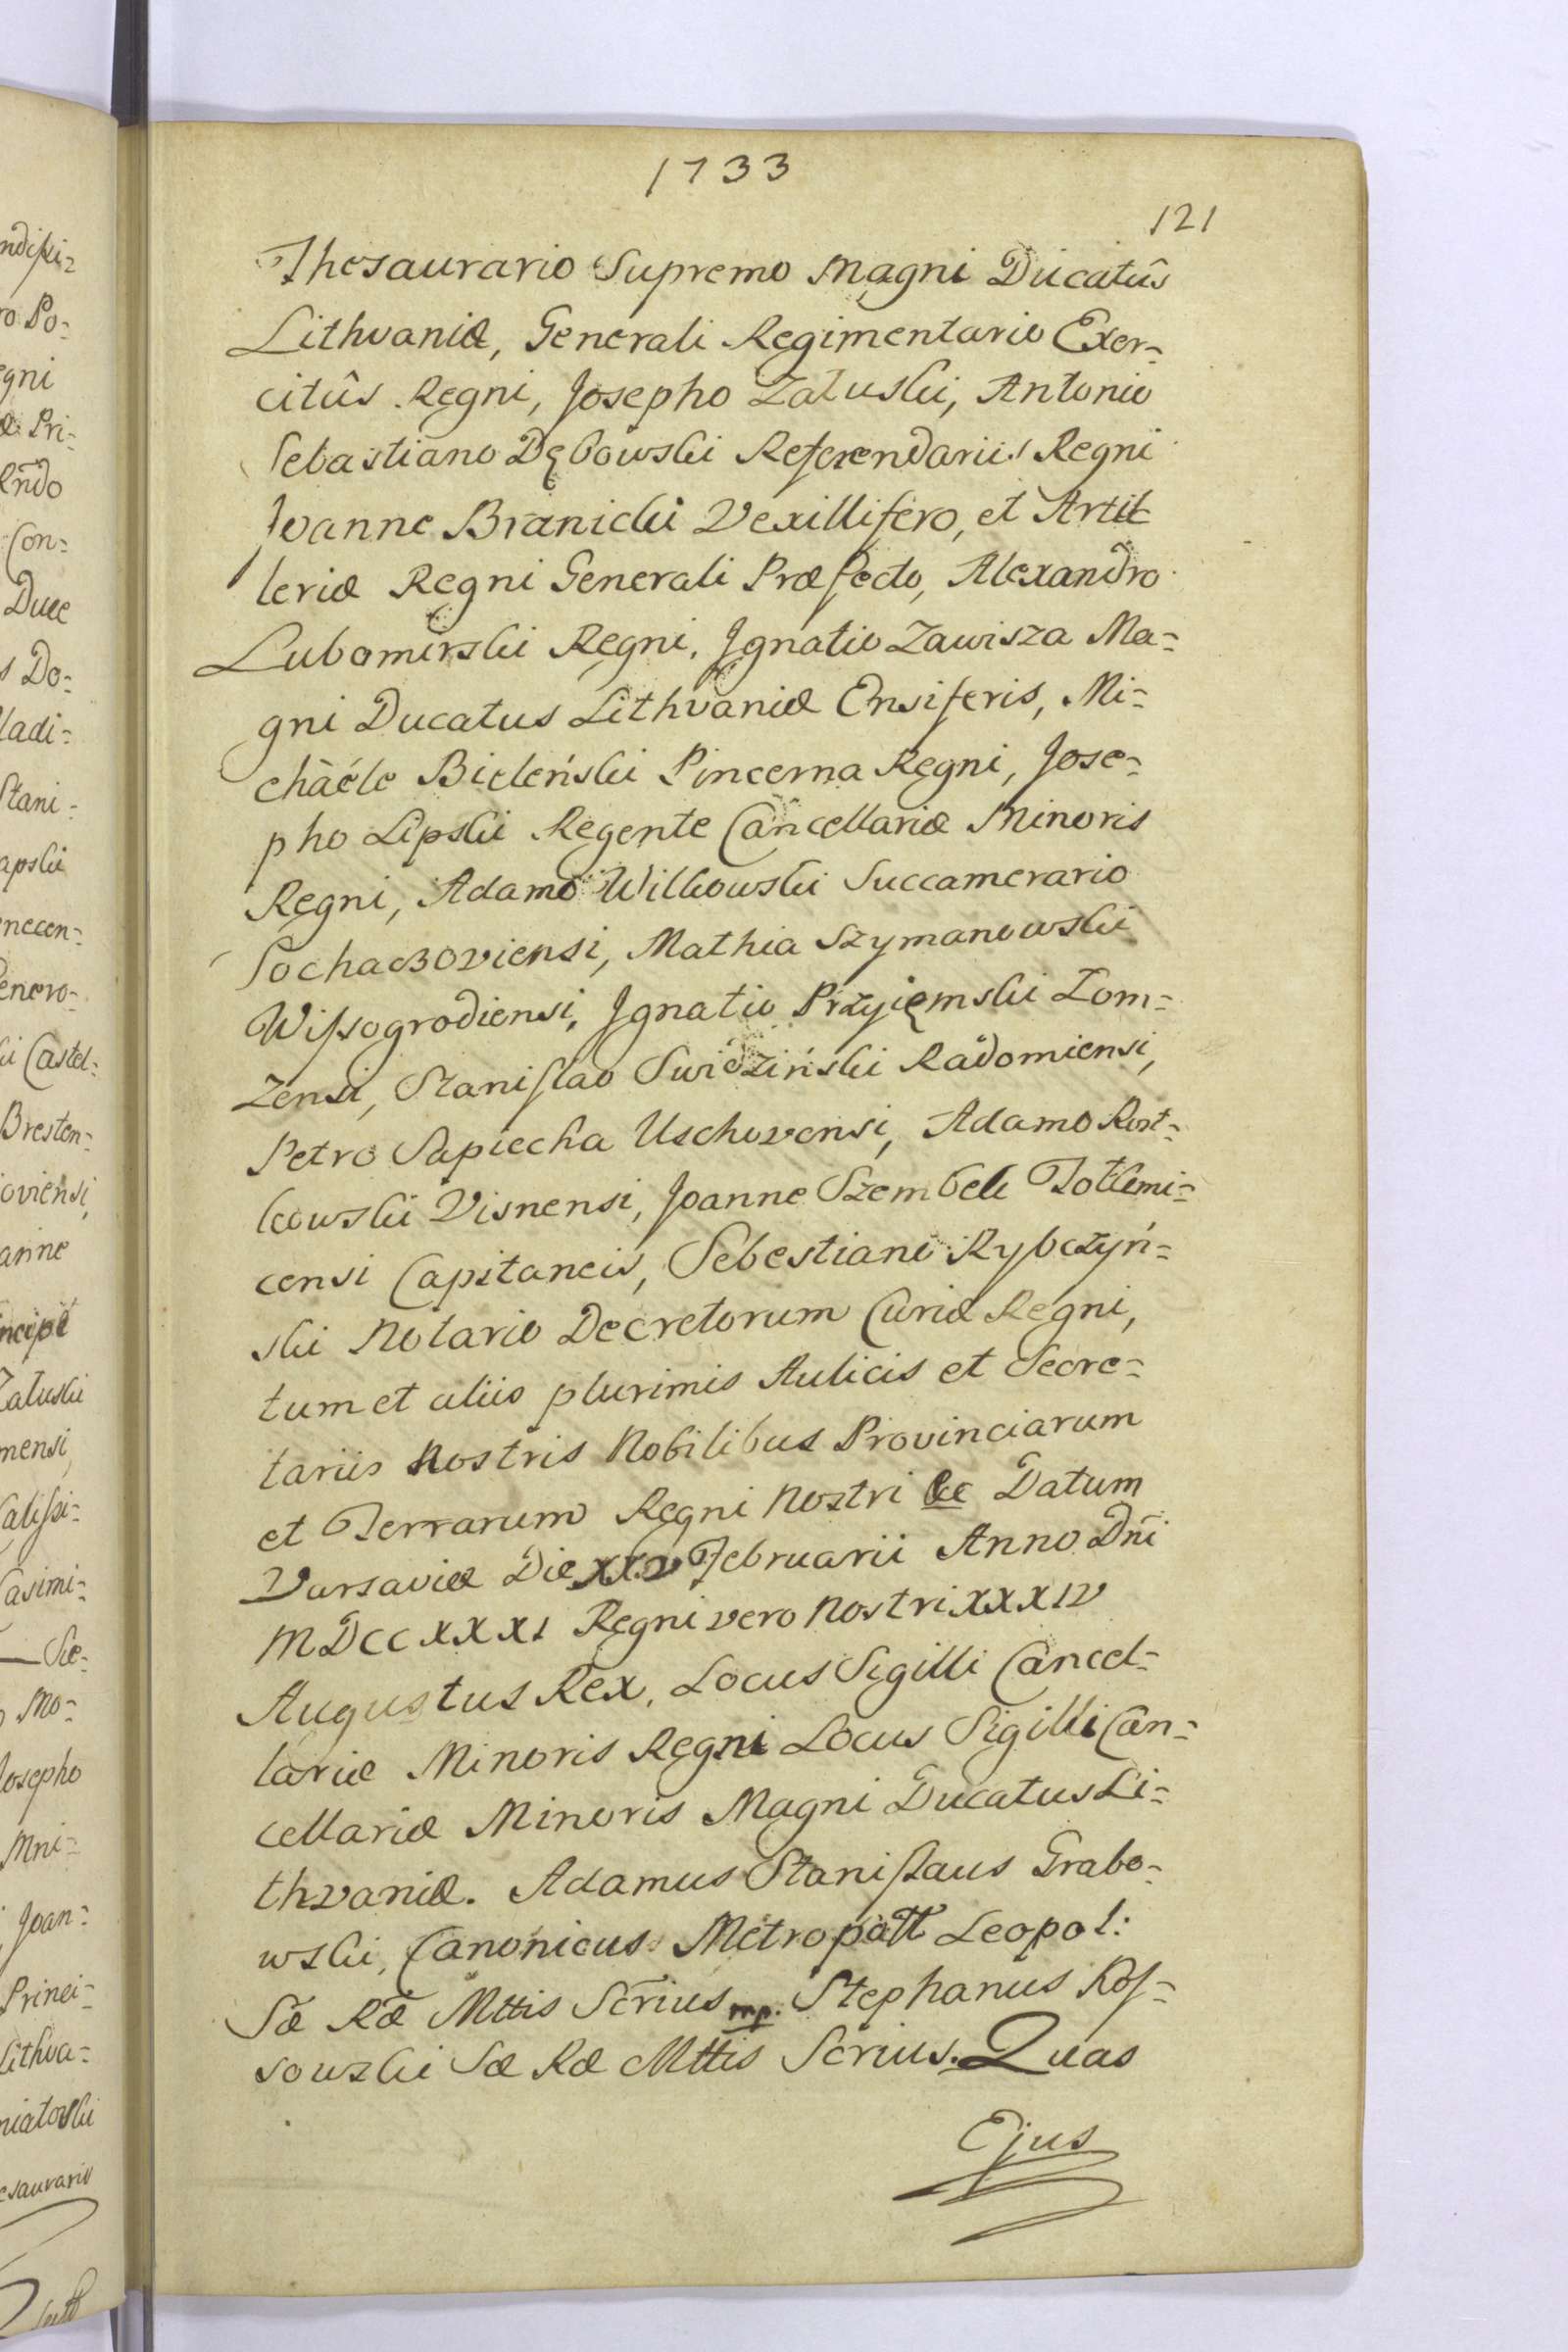 1733
121
Thesaurario Supremo Magni Ducatûs
Lithvaniæ, Generali Regimentario Exer=
citûs Regni, Josepho Załuski, Antonio
Sebastiano Dębowski Referendariis Regni
Joanne Branicki Vexillifero, et Artil
leriæ Regni Generali Præfecto, Alexandro
Lubomirski Regni, Jgnatio Zawisza Ma=
gni Ducatus Lithvaniæ Ensiferis, Mi=
chaéle Bieleński Pincerna Regni, Jose=
pho Lipski Regente Cancellariæ Minoris
Regni, Adamo Wilkowski Succamerario
Sochaczoviensi, Mathia Szymanowski
Wissogrodiensi, Jgnatio Przyięmski Łom=
zensi, Stanislao Swidziński Radomiensi,
Petro Sapiecha Uschovensi, Adamo Rost=
kowski Visnensi, Joanne Szembek Tołkmi=
censi Capitaneis, Sebestiano Rybczyń=
ski Notario Decretorum Curiæ Regni,
tum et aliis plurimis Aulicis et Secre=
tariis Nostris Nobilibus Provinciarum
et Terrarum Regni Nostri &c Datum
Varsaviæ Die XXV Februarii Anno Dñi
MDCCXXXI Regni vero Nostri XXXIV
Augustus Rex, Locus Sigilli Cancel=
lariæ Minoris Regni Locus Sigilli Can=
cellariæ Minoris Magni Ducatus Li=
thvaniæ. Adamus Stanislaus Grabo=
wski, Canonicus Metropatt Leopol:
Sæ Ræ Mttis Scrius mp. Stephanus Ros=
sowski Sæ Ræ Mttis Scrius. Quas
Ejus
ndissi=
ro Po:
egni
æ Pri=
Rndo
Con=
Duce
s Do=
ladi=
Stani=
apski
necen=
enero=
ki Castel=
Bresten=
oviensi,
anne
incipe
Załuski
mensi,
Calissi=
Casimi=
Sie=
Mo=
Josepho
Mni=
Joan=
Princi=
Lithva=
niatowski
esaurario